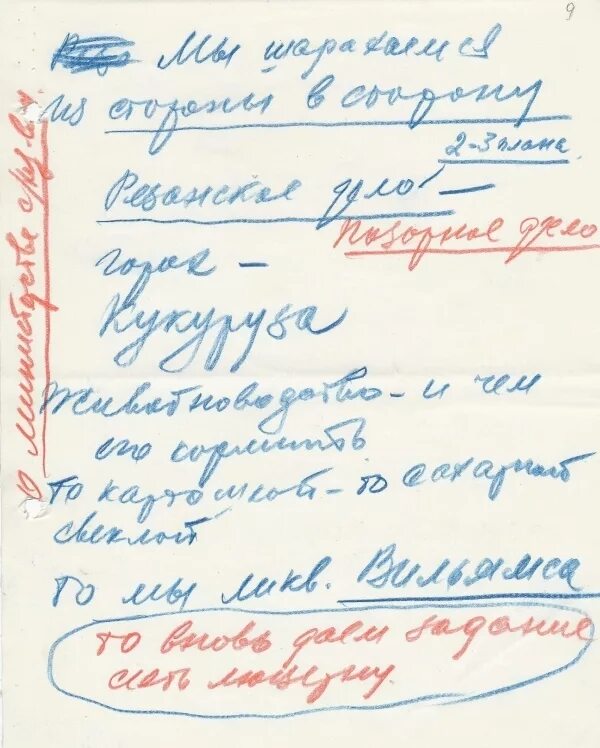 9
Мы шарахаемся
из стороны в сторону
2-3 плана
Резанское дело! —
Позорное дело
горох —
Кукуруза
Животноводство - и чем
его кормить
то картошкой - то сахарной
свеклой
то мы ликв. Вильямса
то вновь даем задание
сеять люцерну.
О министерстве с/хоз-ва